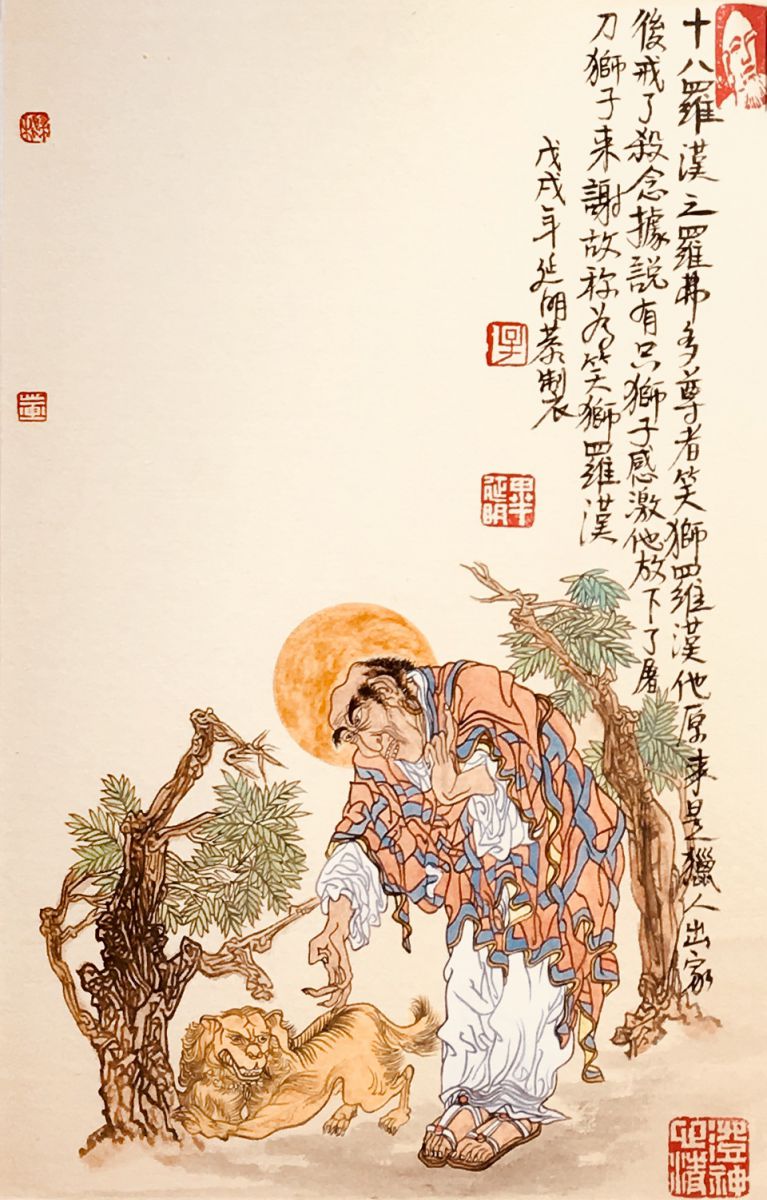 十八羅漢之羅弗多尊者笑獅羅漢他原来是獵人出家
後戒了殺念據說有只獅子感激他放下了屠
刀獅子来謝故称為笑獅羅漢
戊戌年延明恭製
延明
澄神